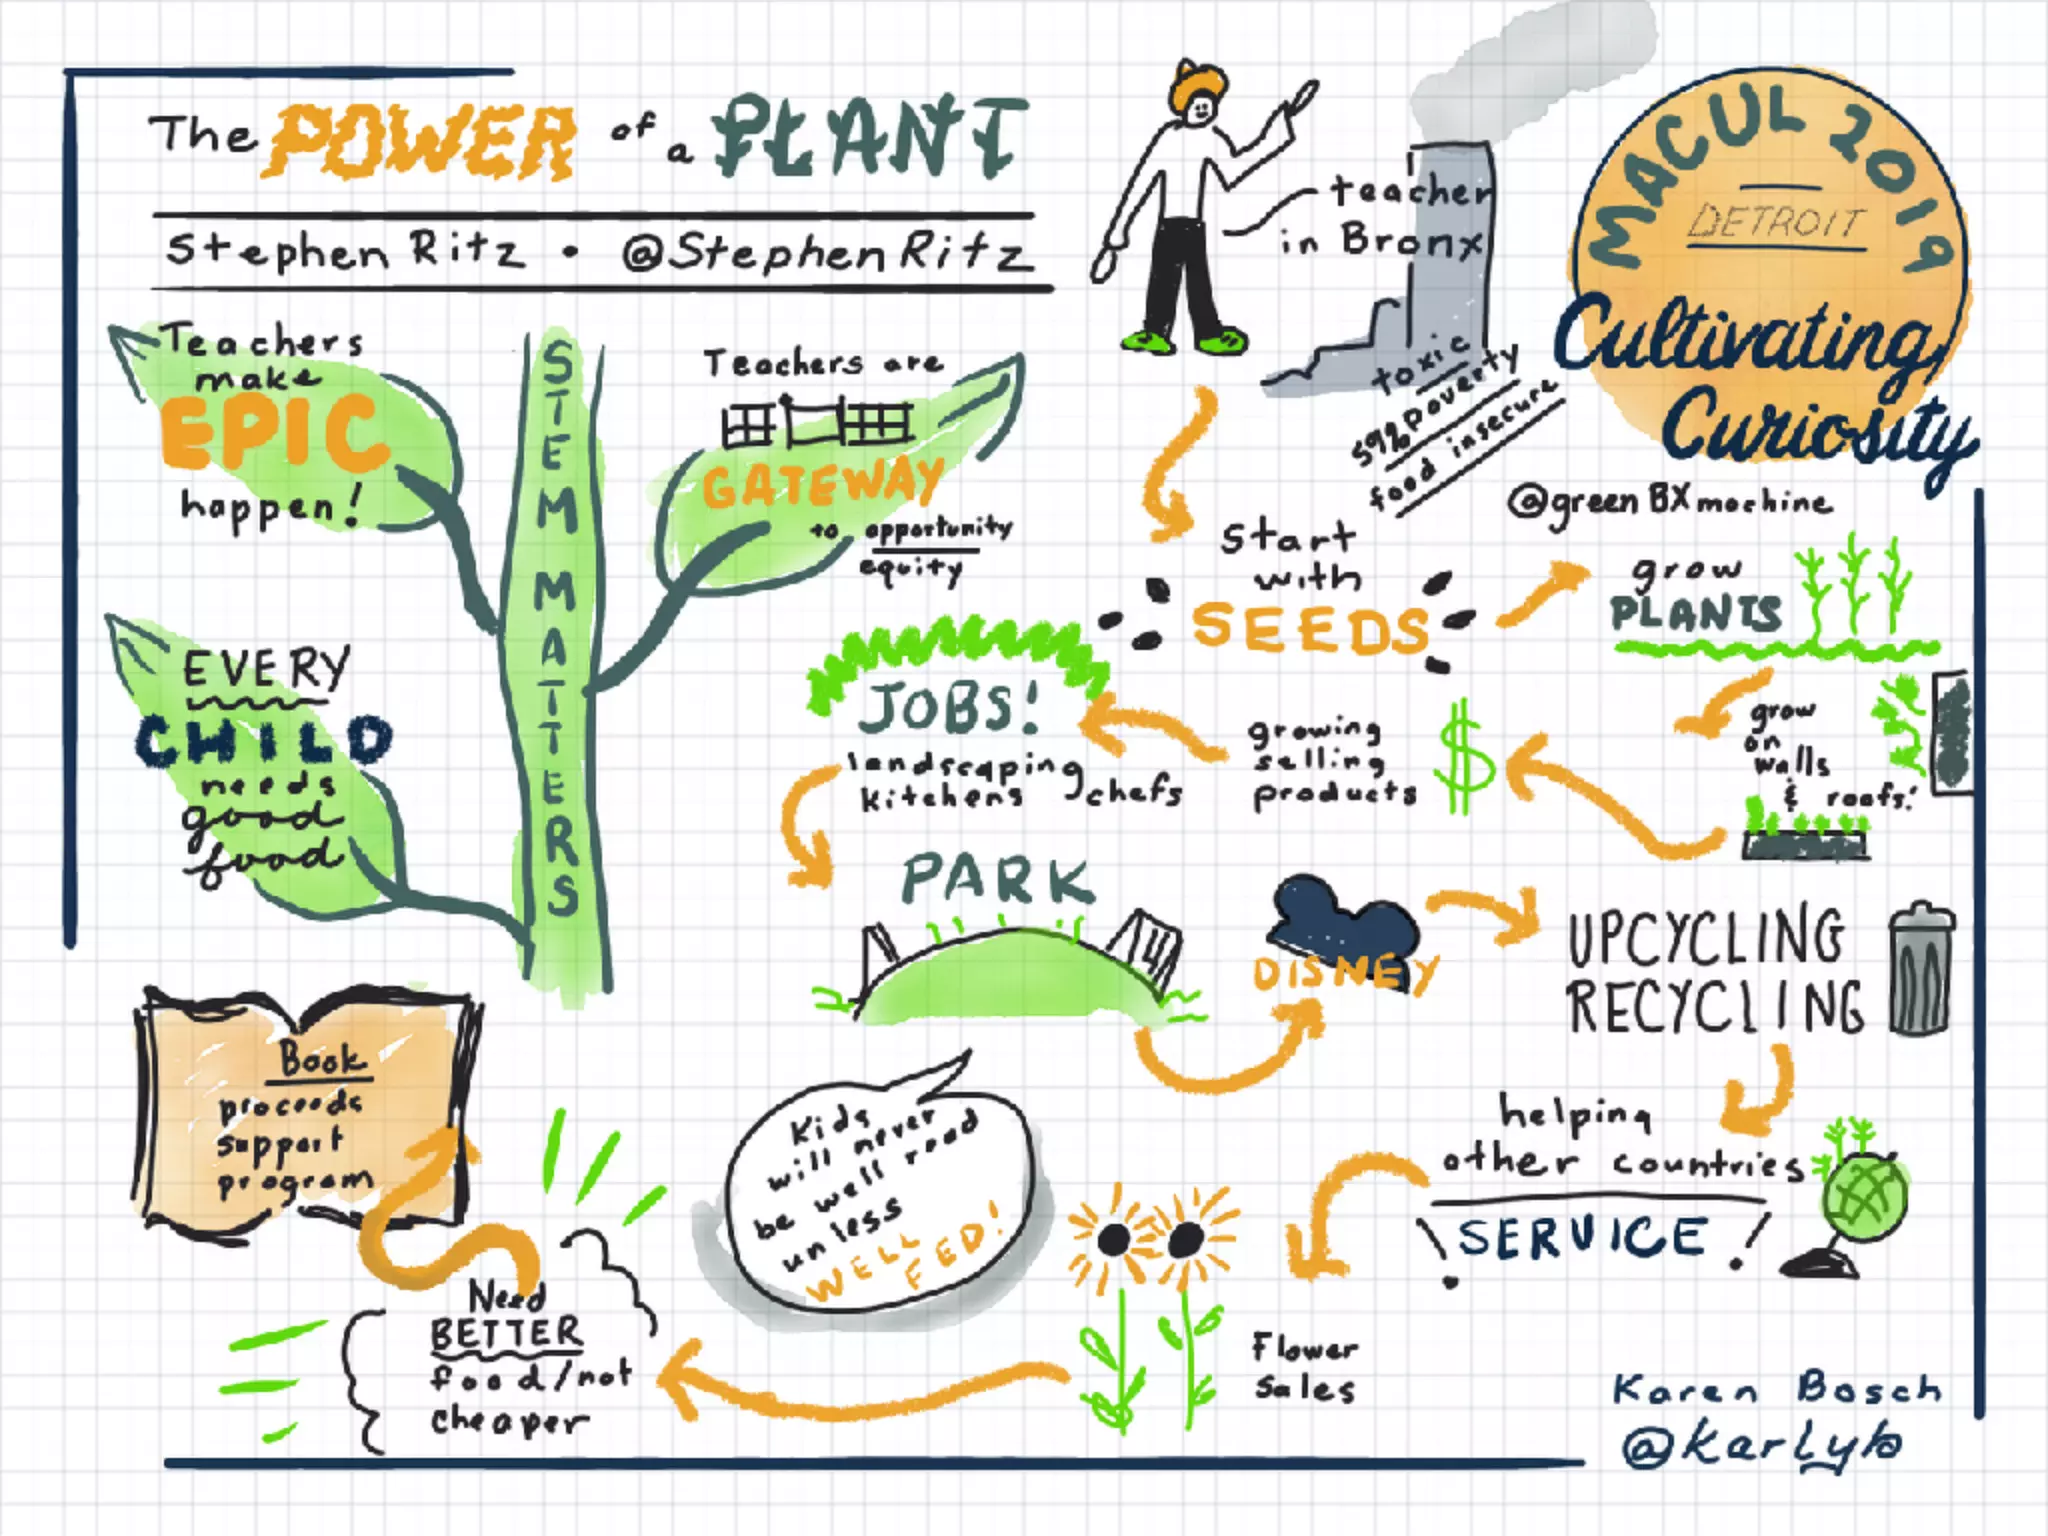 The POWER of a PLANT
Stephen Ritz • @StephenRitz
teacher
in Bronx
toxic
59% poverty
food insecure
MACUL 2019
DETROIT
Cultivating
Curiosity
@greenBXmachine
Teachers
make
EPIC
happen!
STEM MATTERS
Teachers are
GATEWAY
to opportunity
equity
EVERY
CHILD
needs
good
food
Start
with
SEEDS
grow
PLANTS
grow
on
walls
& roofs!
growing
selling
products
$
JOBS!
landscaping
kitchens chefs
PARK
DISNEY
UPCYCLING
RECYCLING
helping
other countries
! SERVICE !
Flower
Sales
Kids
will never
be well read
unless
WELL
FED!
Need
BETTER
food/not
cheaper
Book
proceeds
support
program
Karen Bosch
@karlyb